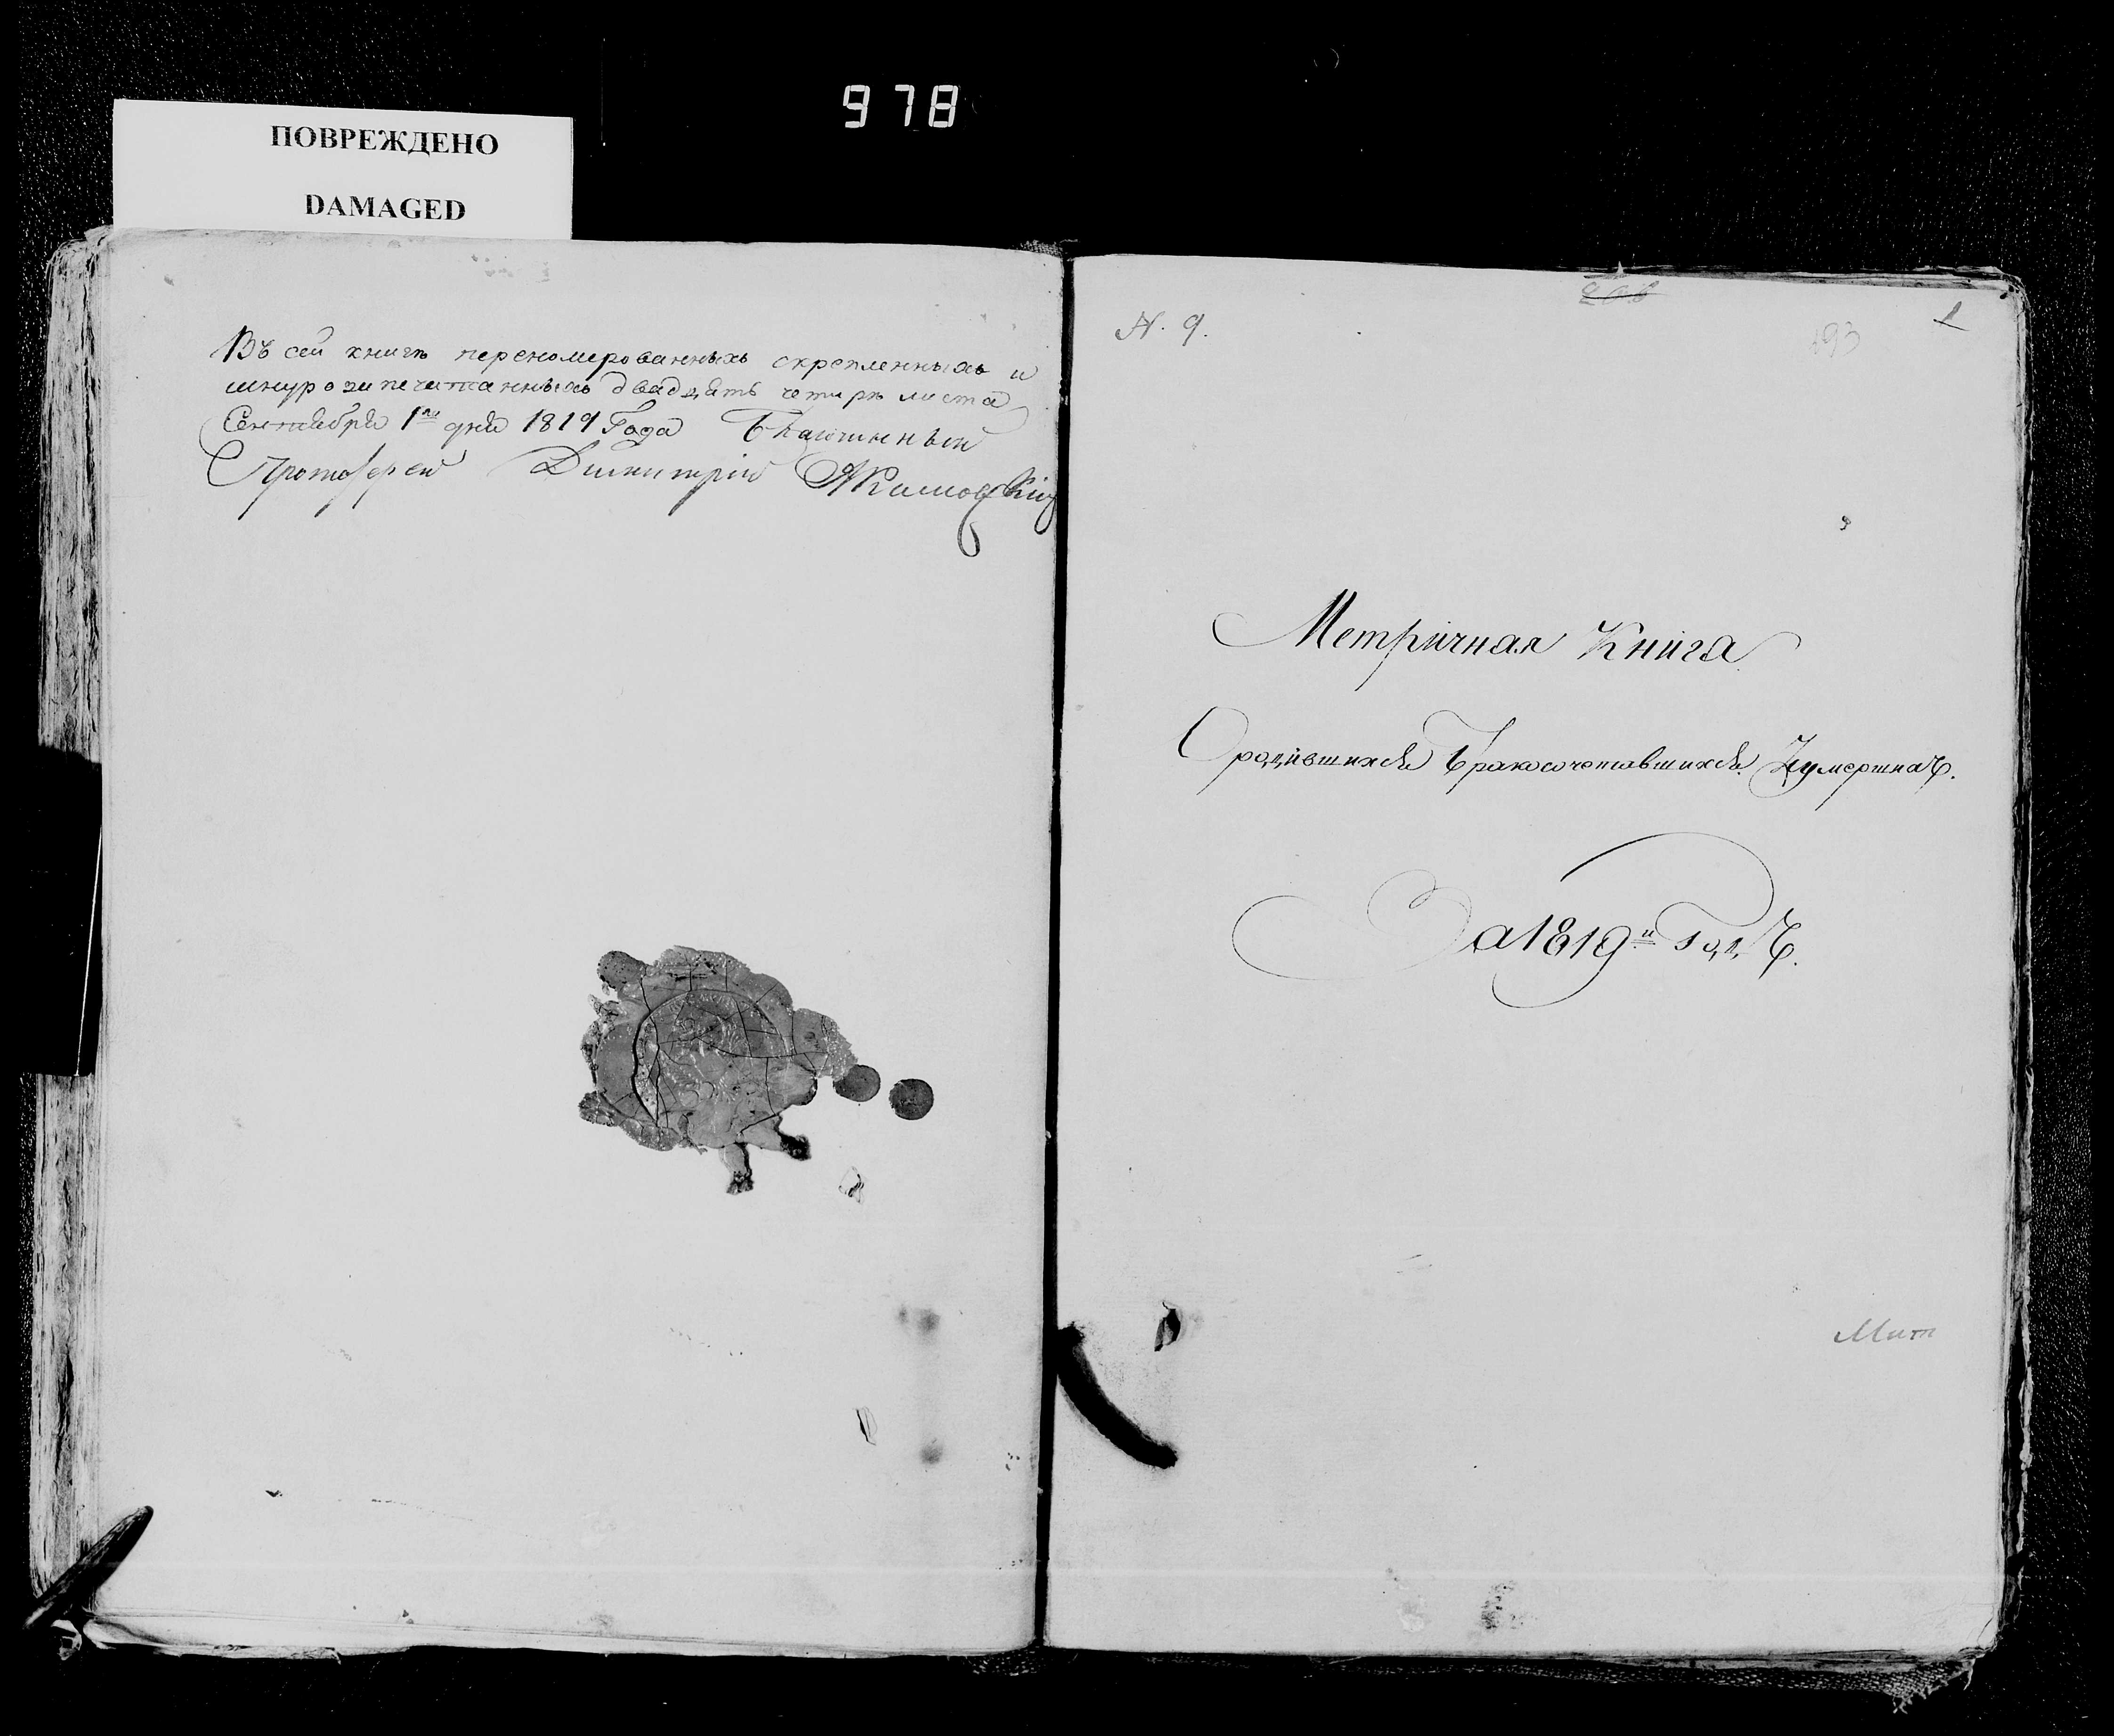 978
ПОВРЕЖДЕНО
DAMAGED
Въ сей книгѣ переномерованныхъ скрепленныхъ и
шнурозапечатанныхъ двадцать четыре листа
Сентября 1го дня 1819 Года Благочинный
Протоіерей Димитрій
N. 9.
193
1
Метричная Книга
О родившихся Бракосочетавшихся И умершихъ.
За 1819й Годъ.